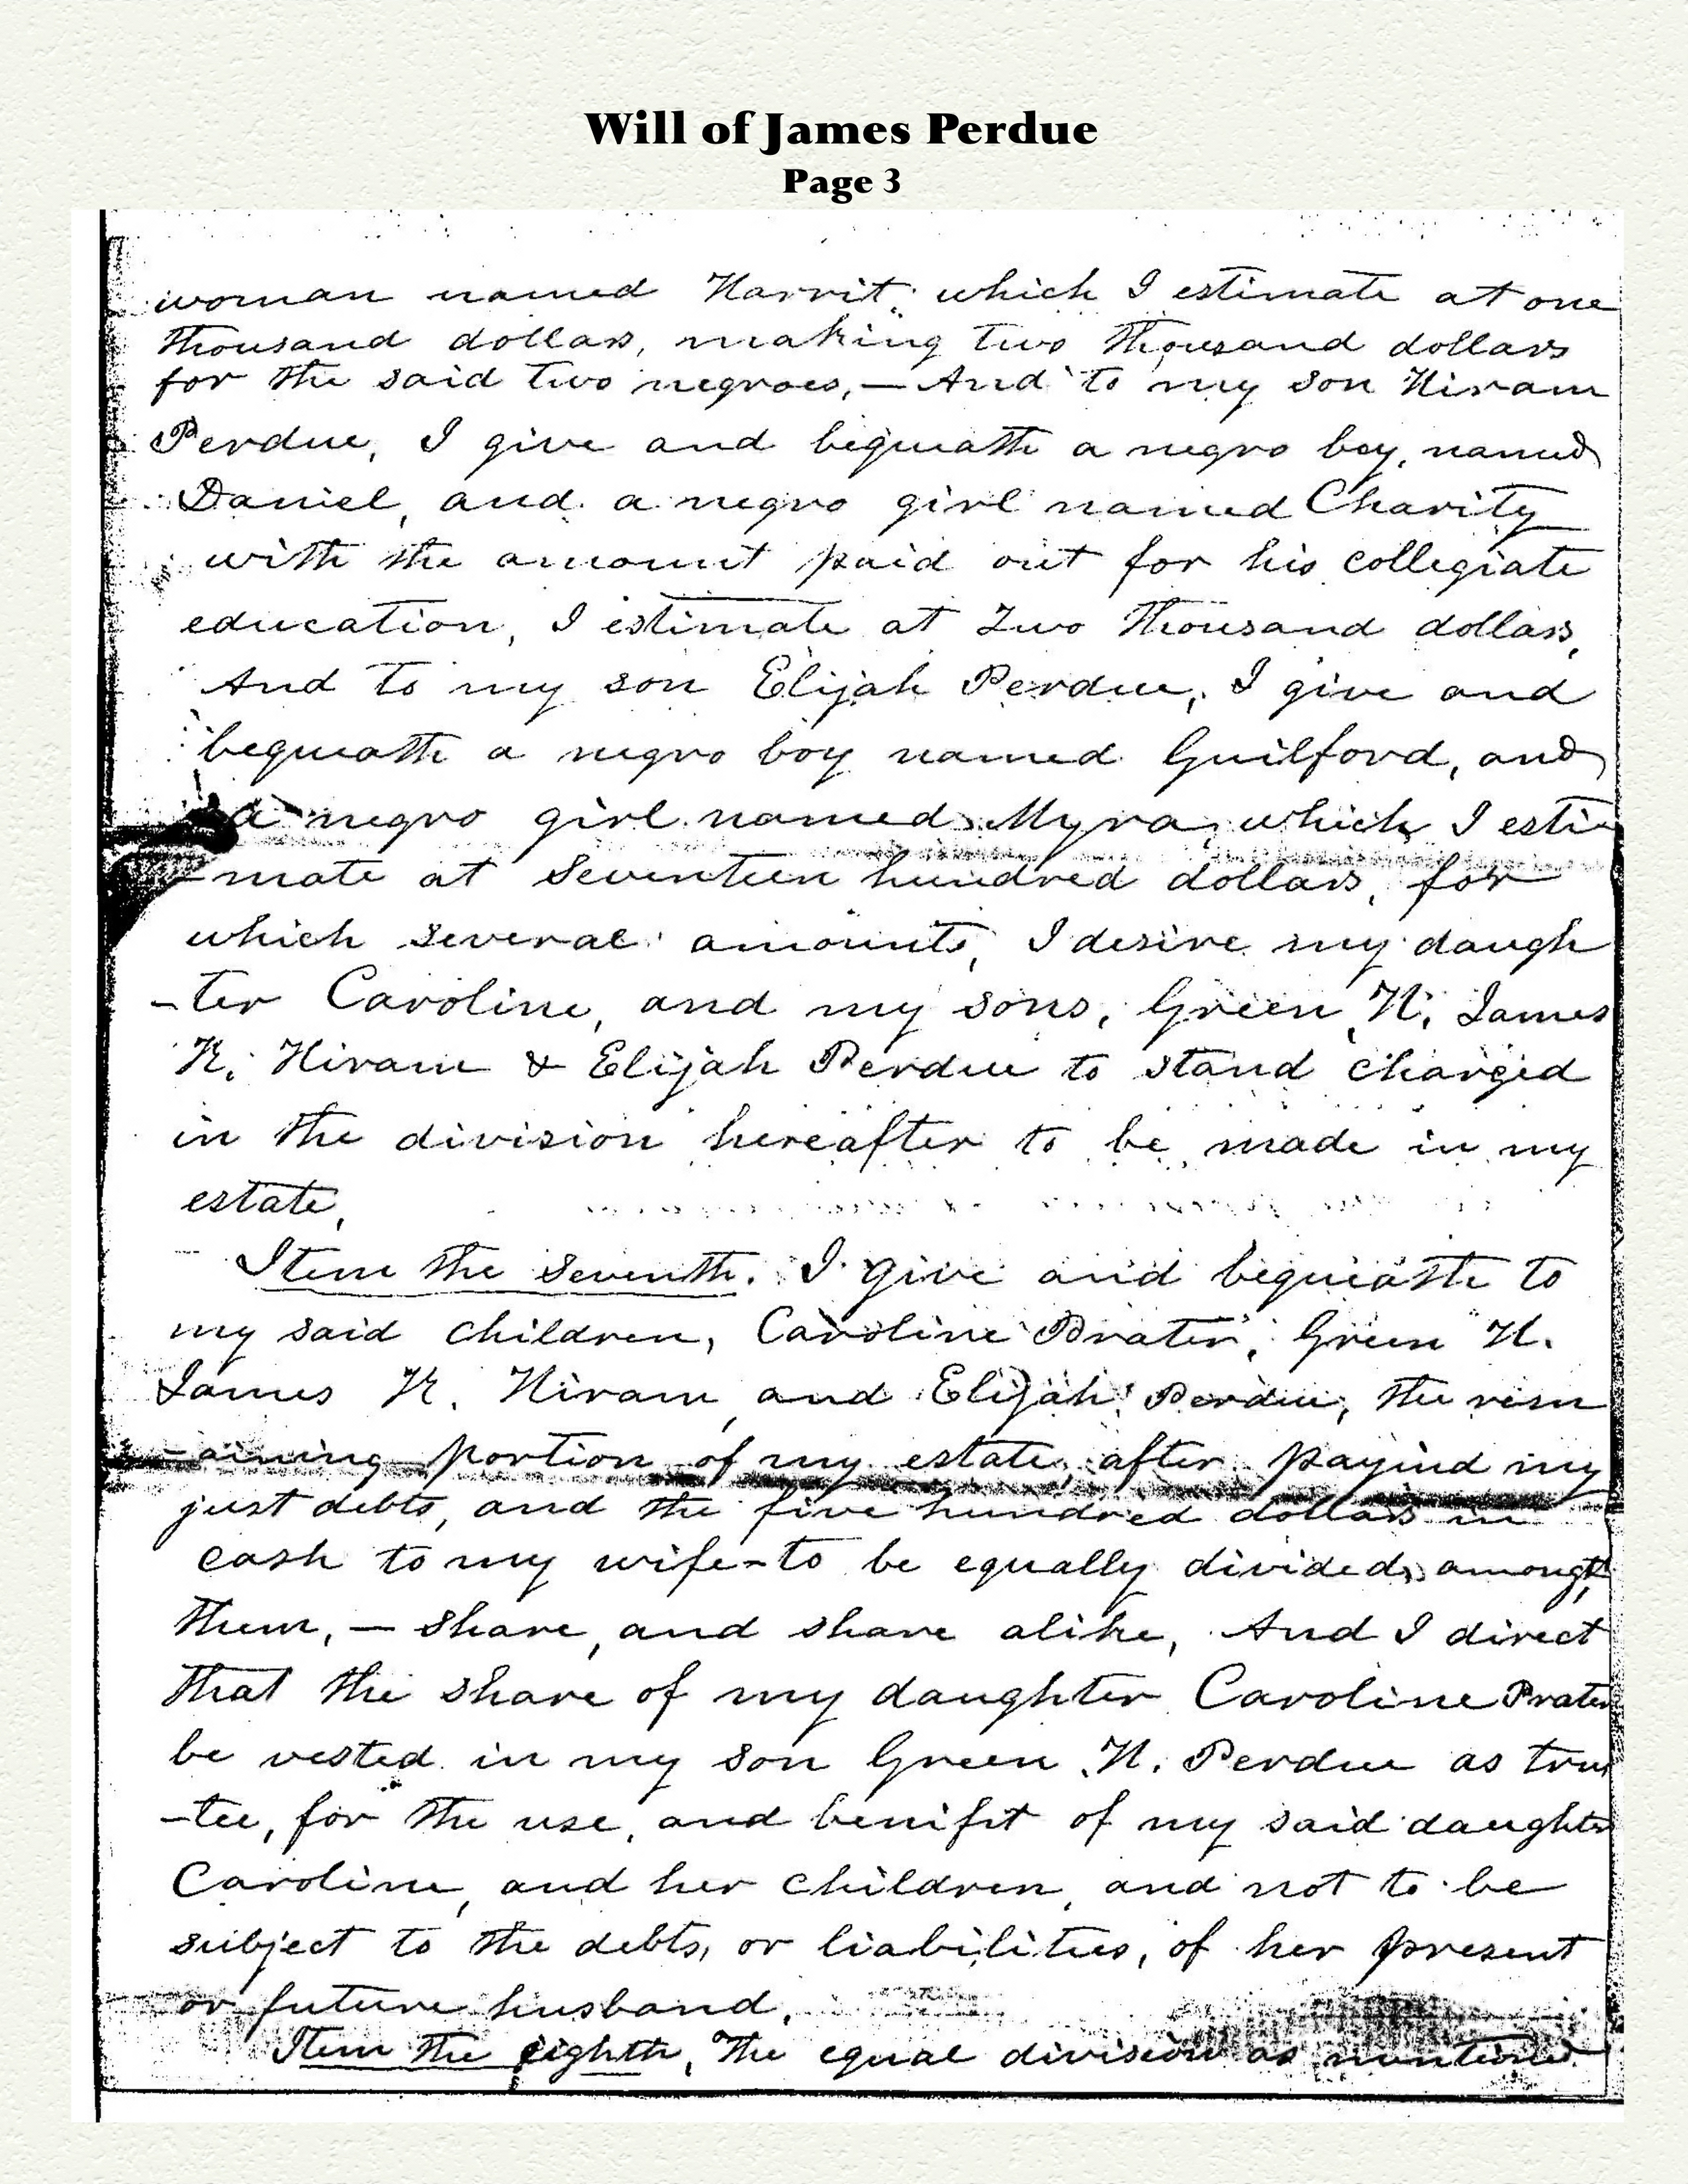 Will of James Perdue
Page 3
woman named Harrit, which I estimate at one
thousand dollars, making two thousand dollars
for the said two negroes, — And to my son Hiram
Perdue, I give and bequeath a negro boy, named
Daniel, and a negro girl named Charity
with the amount paid out for his collegiate
education, I estimate at Two thousand dollars,
And to my son Elijah Perdue, I give and
bequeath a negro boy named Guilford, and
a negro girl named Myra, which I esti-
-mate at Seventeen hundred dollars, for
which several amounts, I desire my daugh
-ter Caroline, and my sons, Green H, James
K, Hiram & Elijah Perdue to stand charged
in the division hereafter to be made in my
estate,
Item the Seventh. I give and bequeath to
my said children, Caroline Prater, Green H.
James K. Hiram, and Elijah Perdue, the rem
-aining portion of my estate, after payind my
just debts, and the five hundred dollars in
cash to my wife - to be equally divided, amongst
them, — share, and share alike, And I direct
that the share of my daughter Caroline Prater
be vested in my son Green H. Perdue as trus
-tee, for the use, and benifit of my said daughter
Caroline, and her children, and not to be
subject to the debts, or liabilities, of her present
or future husband,
Item the eighth, The equal division as mentioned